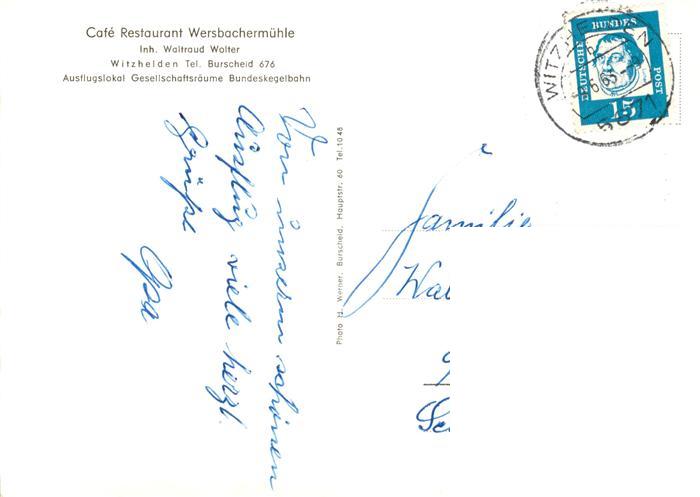 Café Restaurant Wersbachermühle
Inh. Waltraud Wolter
Witzhelden Tel. Burscheid 676
Ausflugslokal Gesellschaftsräume Bundeskegelbahn
Von unserm schönen
Ausflug viele herzl.
Grüße
Opa
Photo H. Werner, Burscheid, Hauptstr. 60 Tel. 1048
DEUTSCHE BUNDES POST
15
5671
Familie